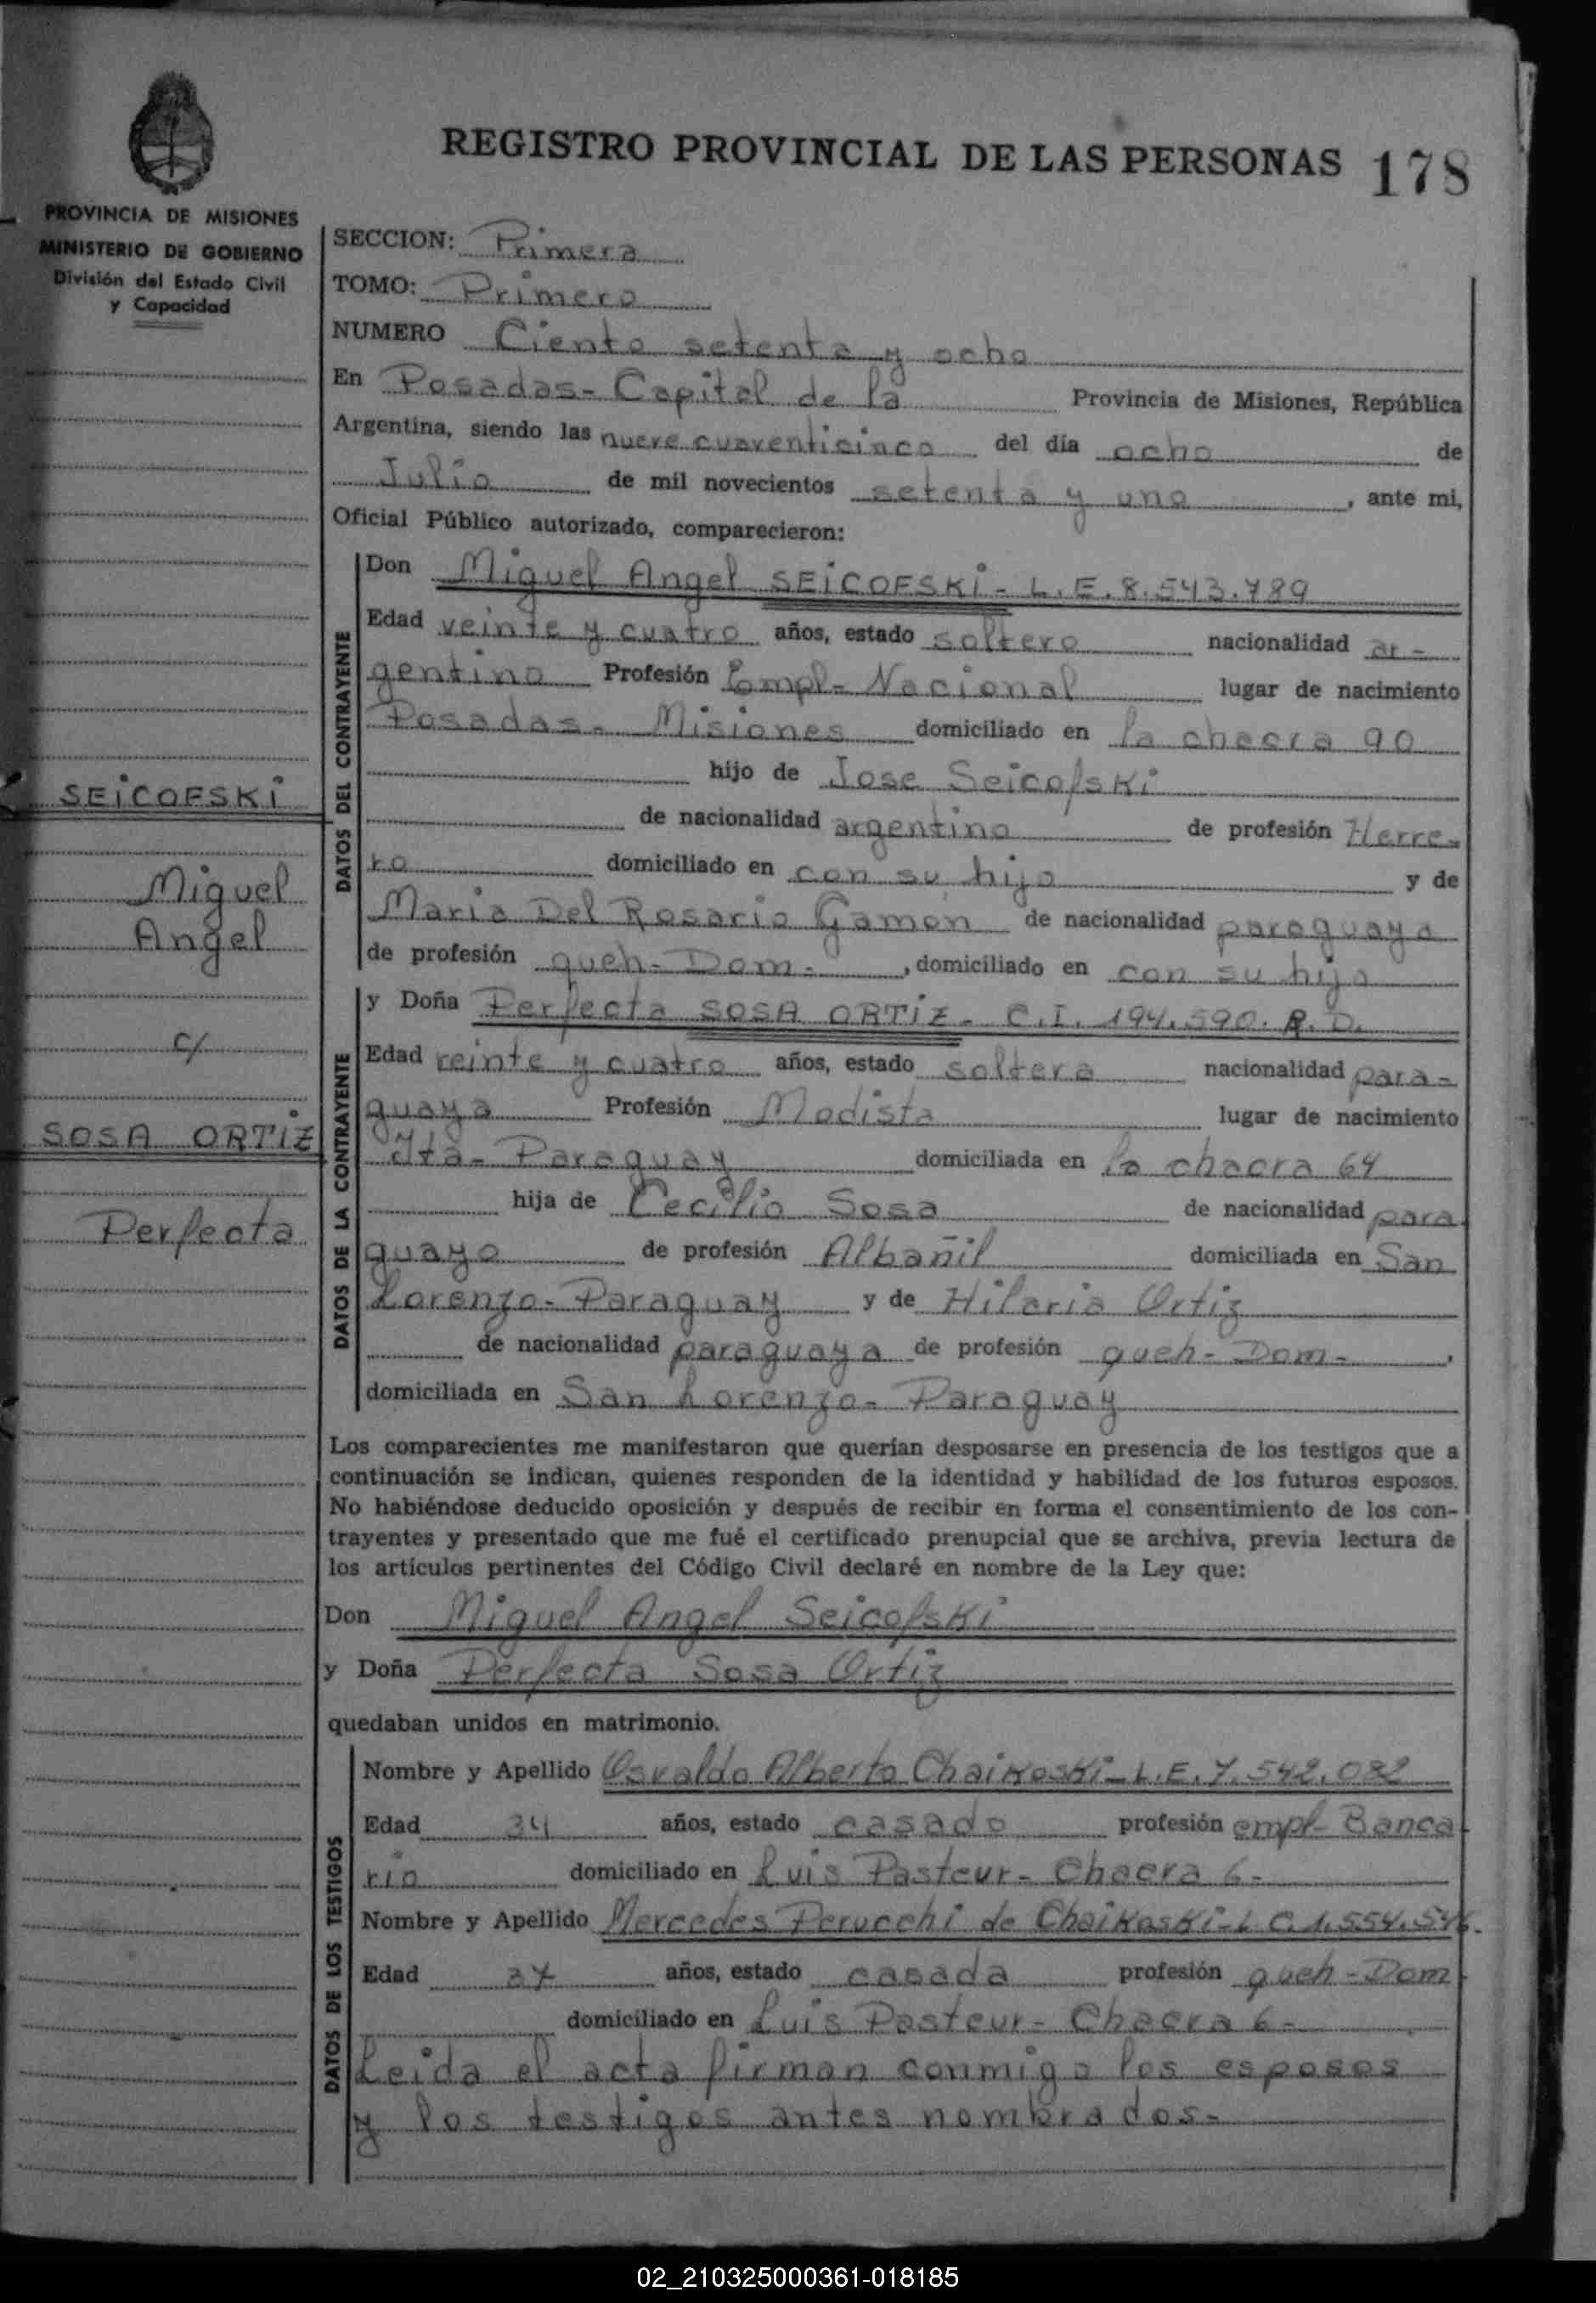 REGISTRO PROVINCIAL DE LAS PERSONAS 178
PROVINCIA DE MISIONES
MINISTERIO DE GOBIERNO
División del Estado Civil
y Capacidad
SEICOFSKI
Miguel
Angel
c/
SOSA ORTIZ
Perfecta
SECCION: Primera
TOMO: Primero
NUMERO Ciento setenta y ocho
En Posadas- Capital de la Provincia de Misiones, República
Argentina, siendo las nueve cuarenticinco del día ocho de
Julio de mil novecientos setenta y uno, ante mi,
Oficial Público autorizado, comparecieron:
DATOS DEL CONTRAYENTE
Don Miguel Angel SEICOFSKI- L.E. 8.543.789
Edad veinte y cuatro años, estado soltero nacionalidad ar-
gentino Profesión Empl- Nacional lugar de nacimiento
Posadas- Misiones domiciliado en la chacra 90
hijo de Jose Seicofski
de nacionalidad argentino de profesión Herre-
ro domiciliado en con su hijo y de
Maria Del Rosario Gamon de nacionalidad paraguaya
de profesión queh- Dom-, domiciliado en con su hijo
DATOS DE LA CONTRAYENTE
y Doña Perfecta SOSA ORTIZ- C.I. 194.590. R.D.
Edad veinte y cuatro años, estado soltera nacionalidad para-
guaya Profesión Modista lugar de nacimiento
Itá- Paraguay domiciliada en la chacra 64
hija de Cecilio Sosa de nacionalidad para
guayo de profesión Albañil domiciliada en San
Lorenzo- Paraguay y de Hilaria Ortiz
de nacionalidad paraguaya de profesión queh- Dom-,
domiciliada en San Lorenzo- Paraguay
Los comparecientes me manifestaron que querían desposarse en presencia de los testigos que a
continuación se indican, quienes responden de la identidad y habilidad de los futuros esposos.
No habiéndose deducido oposición y después de recibir en forma el consentimiento de los con-
trayentes y presentado que me fué el certificado prenupcial que se archiva, previa lectura de
los artículos pertinentes del Código Civil declaré en nombre de la Ley que:
Don Miguel Angel Seicofski
y Doña Perfecta Sosa Ortiz
quedaban unidos en matrimonio.
DATOS DE LOS TESTIGOS
Nombre y Apellido Osvaldo Alberto Chaikoski- L.E. 7.542.082
Edad 34 años, estado casado profesión empl- Banca
rio domiciliado en Luis Pasteur- Chacra 6-
Nombre y Apellido Mercedes Perucchi de Chaikoski- L C. 1.554.546.
Edad 37 años, estado casada profesión queh- Dom
domiciliado en Luis Pasteur- Chacra 6-
Leida el acta firman conmigo los esposos
y los testigos antes nombrados-
02_210325000361-018185